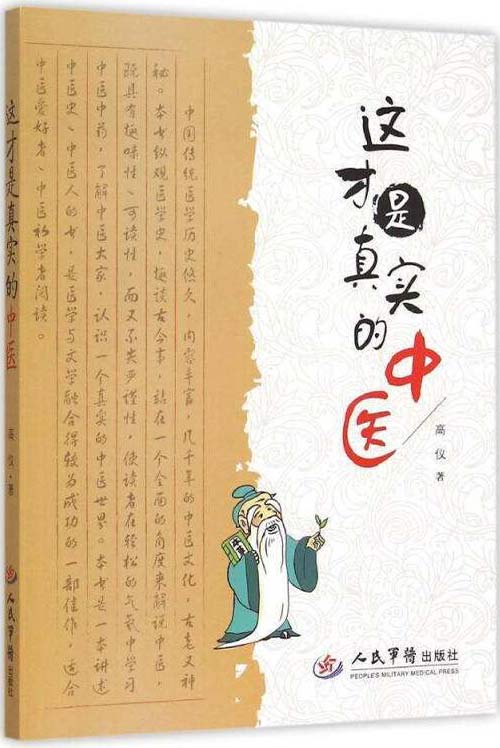 这才是真实的中医
高仪
著
中国传统医学历史悠久，内容丰富，几千年的中医文化，古老又神
秘。本书纵观医学史，趣谈古今事，站在一个全面的角度来解说中医，
既具有趣味性、可读性，而又不失严谨性，使读者在轻松的气氛中学习
中医中药，了解中医大家，认识一个真实的中医世界。本书是一本讲述
中医史、中医人的书，是医学与文学融合得较为成功的一部佳作，适合
中医爱好者、中医初学者阅读。
人民軍醫出版社
PEOPLE'S MILITARY MEDICAL PRESS
这才是真实的中医
高仪·著
人民軍醫出版社